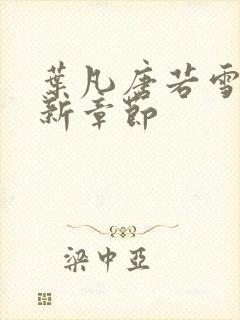 葉凡唐若雪
新章節
梁中亞